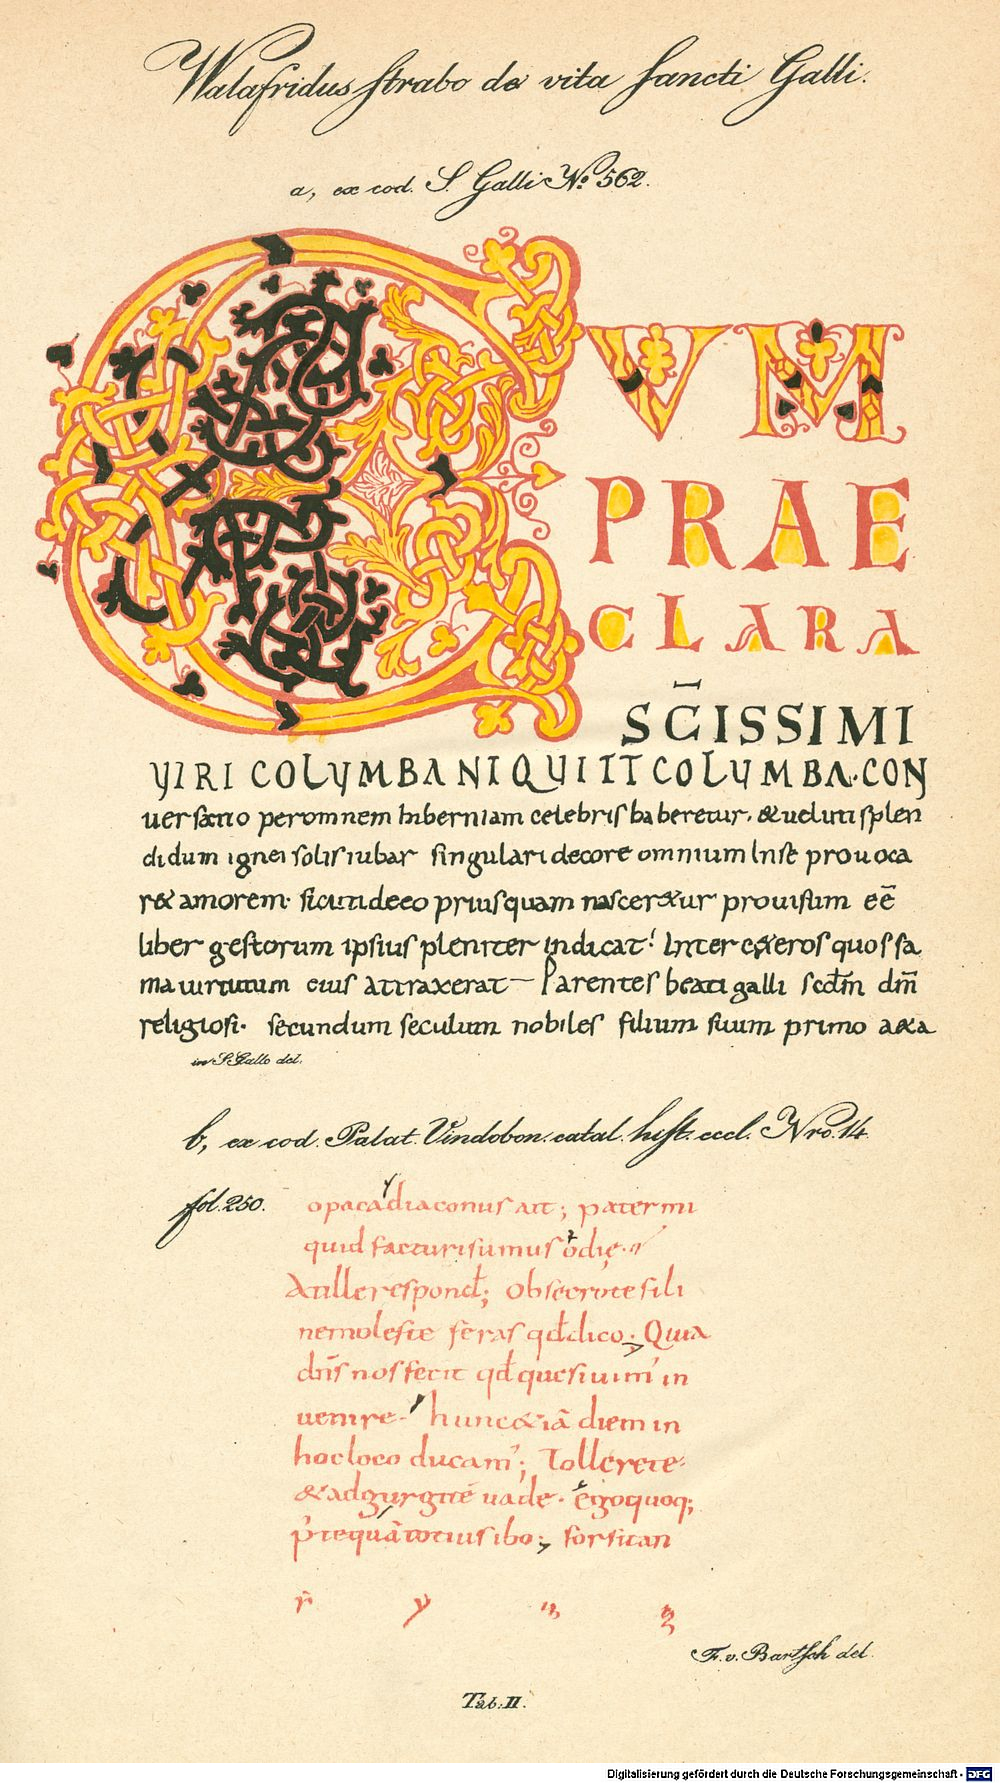 Walafridus Strabo de vita Sancti Galli.
a, ex cod. S. Galli No. 562.
CVM
PRAE
CLARA
SC̄ISSIMI
VIRI COLUMBANI QUI ET COLUMBA. CON
uersatio peromnem hiberniam celebris haberetur. & ueluti splen
didum ignei solis iubar singulari decore omnium In se prouoca
r& amorem. sicuti de eo priusquam nascer&ur prouisum eē
liber gestorum ipsius pleniter indicat! Inter c&eros quos fa
ma uirtutum eius attraxerat Parentes beati galli scdm̄ dm̄
religiosi. secundum seculum nobiles filium suum primo a&a
in S. Gallo del.
b, ex cod. Palat. Vindobon. catal. hist. eccl. Nro. 14.
fol. 250.
opaca diaconus ait; pater mi
quid facturi sumus odię.
At ille respond̄; Obsecro te fili
ne moleste feras qd̄ dico; Quia
dn̄s nos fecit qd̄ quesiuim' in
uenire. hunc &iā diem in
hoc loco ducam'; Tolle rete
& ad gurgitē uade. ego quoq;
p' te quātotius ibo; forsitan
F. v. Bartsch del.
Tab. II.
Digitalisierung gefördert durch die Deutsche Forschungsgemeinschaft - DFG